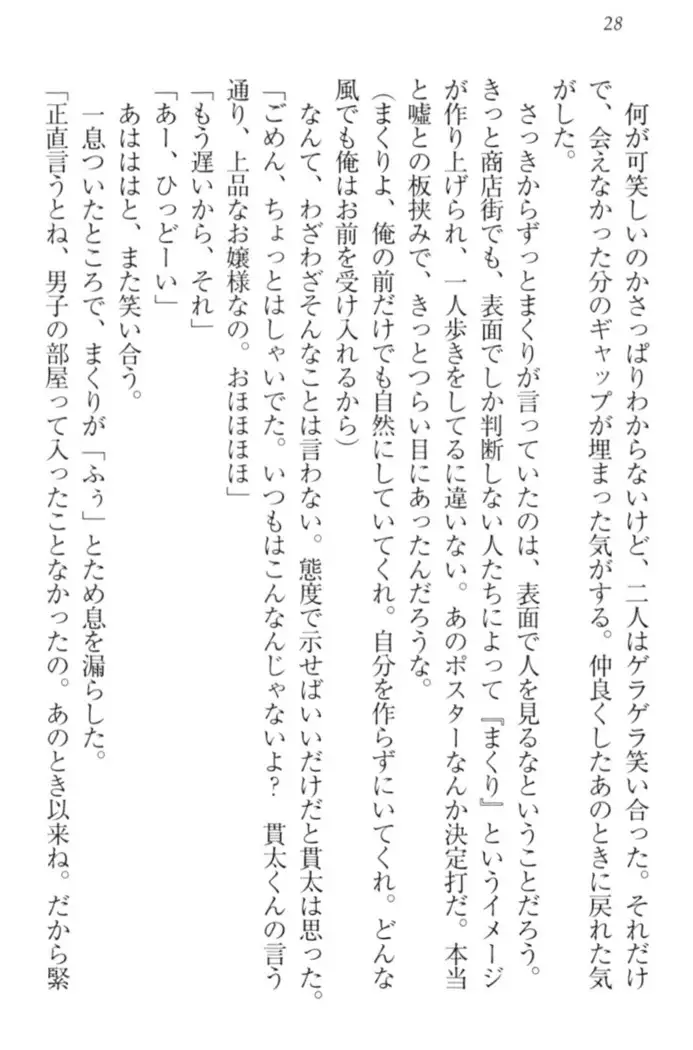 28
何が可笑しいのかさっぱりわからないけど、二人はゲラゲラ笑い合った。それだけ
で、会えなかった分のギャップが埋まった気がする。仲良くしたあのときに戻れた気
がした。
さっきからずっとまくりが言っていたのは、表面で人を見るなということだろう。
きっと商店街でも、表面でしか判断しない人たちによって『まくり』というイメージ
が作り上げられ、一人歩きをしてるに違いない。あのポスターなんか決定打だ。本当
と嘘との板挟みで、きっとつらい目にあったんだろうな。
(まくりよ、俺の前だけでも自然にしていてくれ。自分を作らずにいてくれ。どんな
風でも俺はお前を受け入れるから)
なんて、わざわざそんなことは言わない。態度で示せばいいだけだと貫太は思った。
「ごめん、ちょっとはしゃいでた。いつもはこんなんじゃないよ? 貫太くんの言う
通り、上品なお嬢様なの。おほほほほ」
「もう遅いから、それ」
「あー、ひっどーい」
あはははと、また笑い合う。
一息ついたところで、まくりが「ふぅ」とため息を漏らした。
「正直言うとね、男子の部屋って入ったことなかったの。あのとき以来ね。だから緊